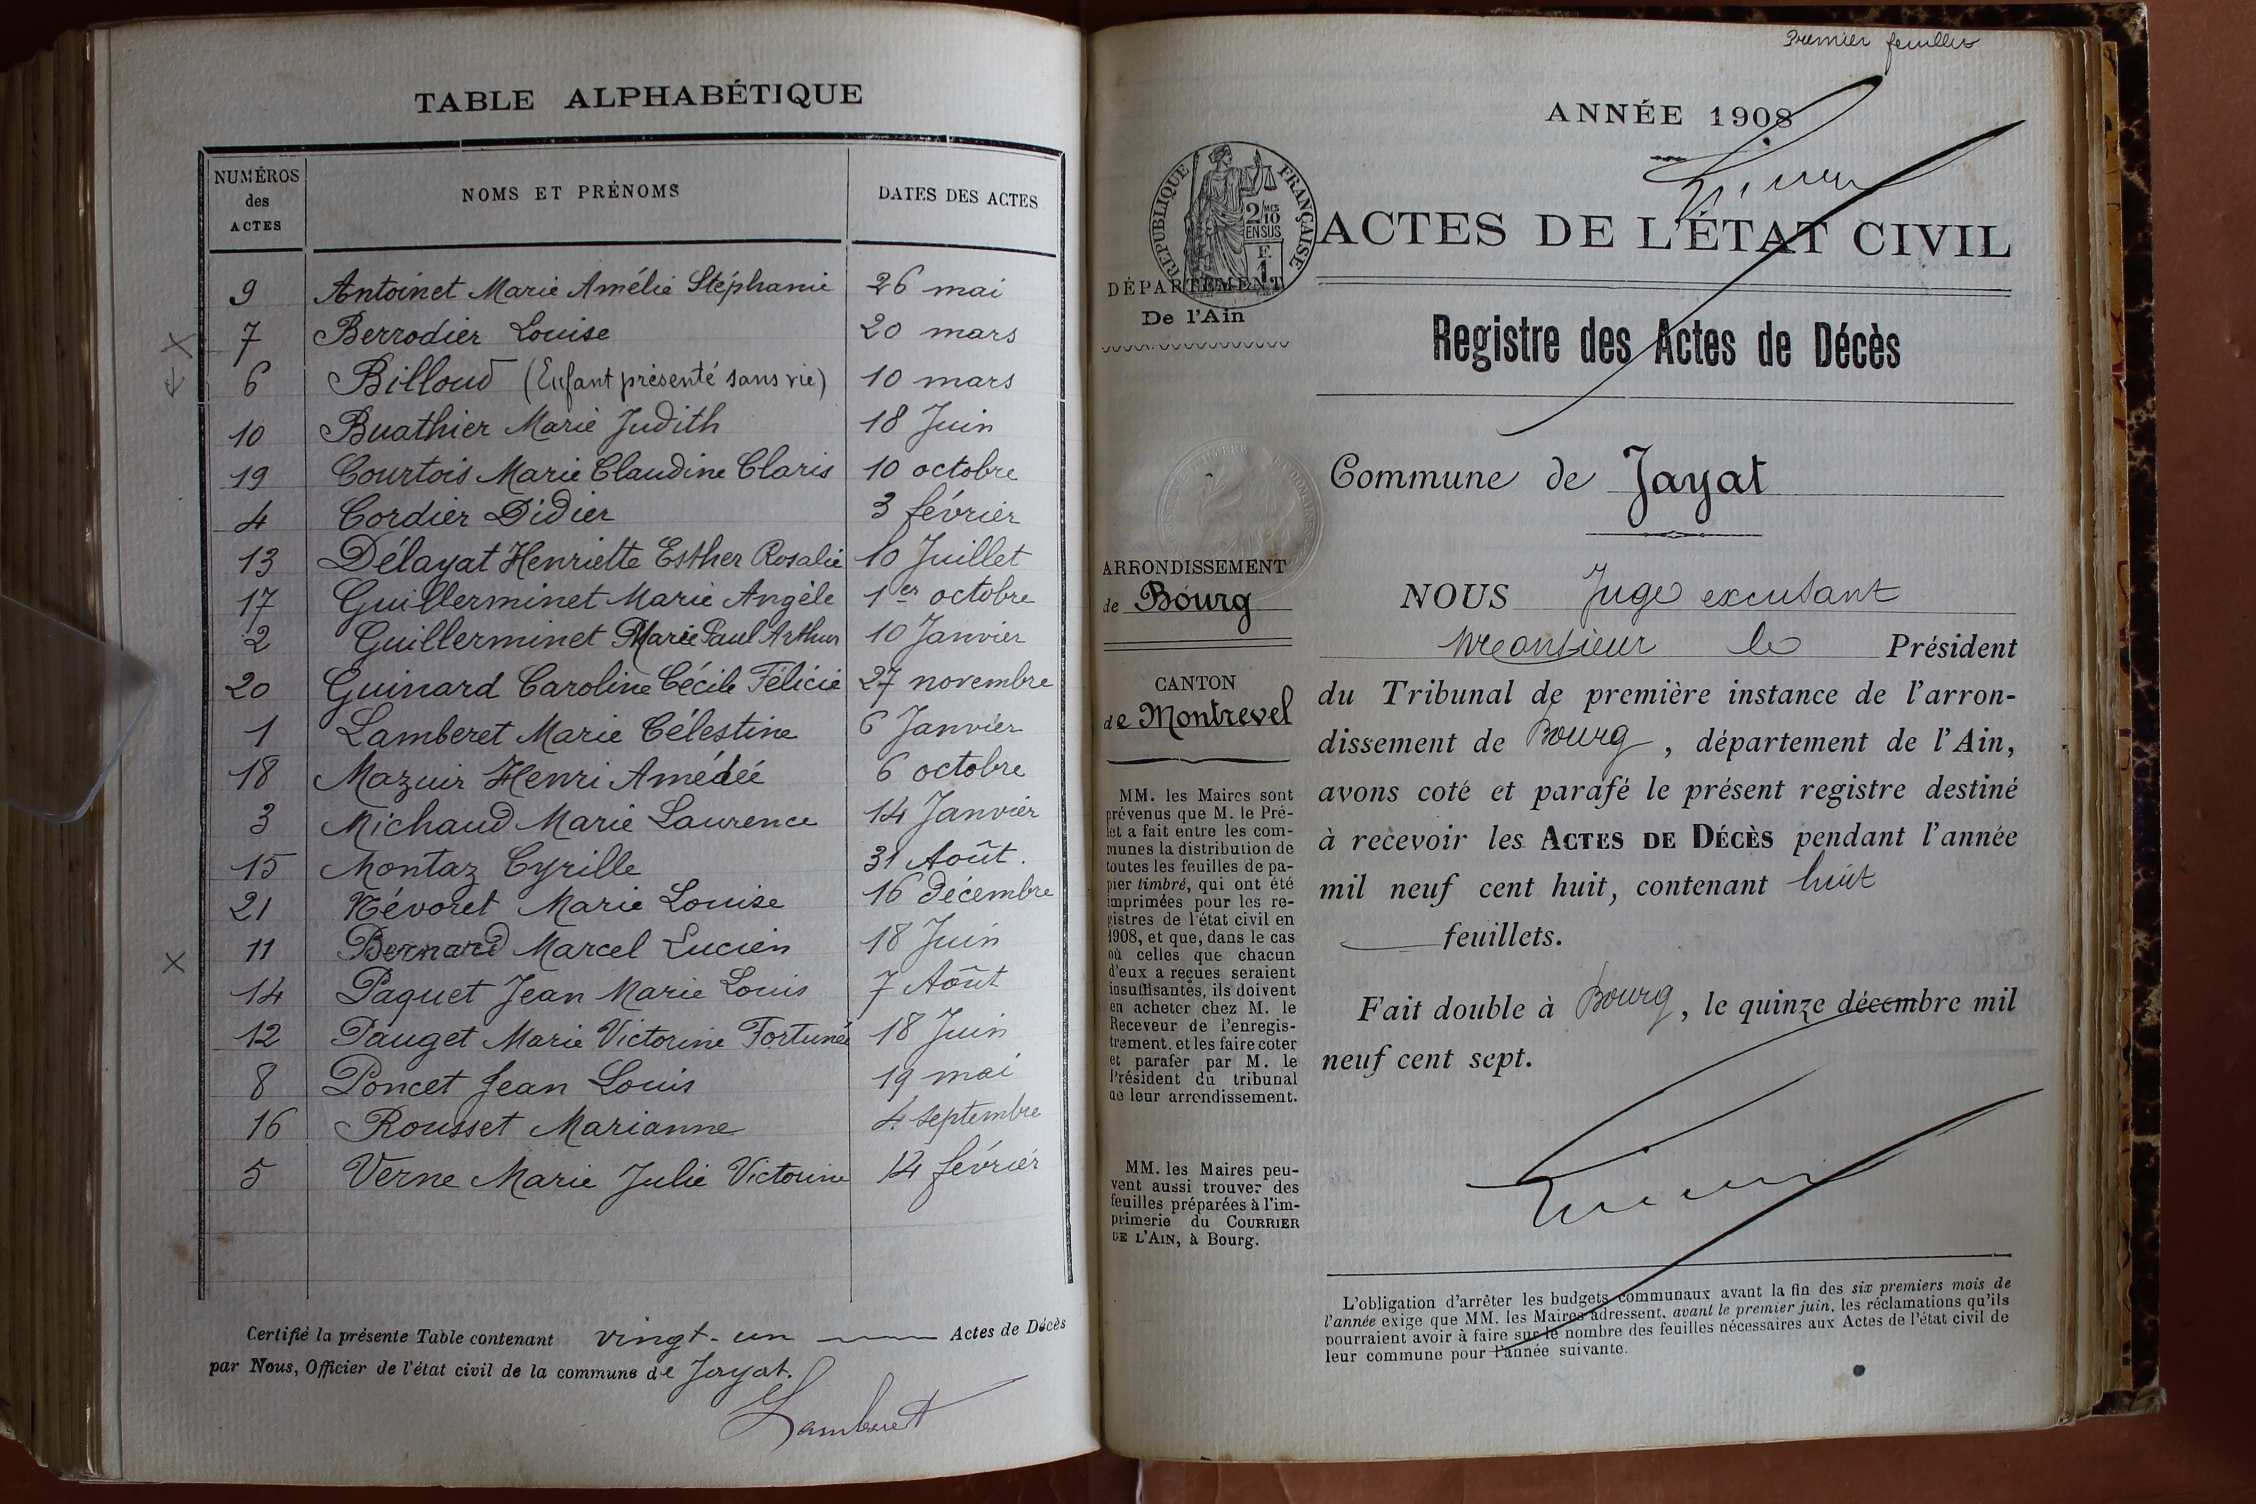 TABLE ALPHABÉTIQUE
NUMÉROS des ACTES
NOMS ET PRÉNOMS
DATES DES ACTES
9 Antoinet Marie Amélie Stéphanie 26 mai
7 Berrodier Louise 20 mars
6 Billoud (Enfant présenté sans vie) 10 mars
10 Buathier Marie Judith 18 Juin
19 Courtois Marie Claudine Claris 10 octobre
4 Cordier Didier 3 février
13 Délayat Henriette Esther Rosalie 10 Juillet
17 Guillerminet Marie Angèle 1er octobre
2 Guillerminet Marie Paul Arthur 10 Janvier
20 Guinard Caroline Cécile Félicie 27 novembre
1 Lamberet Marie Célestine 6 Janvier
18 Mazuir Henri Amédée 6 octobre
3 Michaud Marie Laurence 14 Janvier
15 Montaz Cyrille 31 Août.
21 Névoret Marie Louise 16 décembre
11 Bernard Marcel Lucien 18 Juin
14 Paquet Jean Marie Louis 7 Août
12 Pauget Marie Victorine Fortunée 18 Juin
8 Poncet Jean Louis 19 mai
16 Rousset Marianne 4 septembre
5 Verne Marie Julie Victorine 14 février
Certifié la présente Table contenant vingt-un Actes de Décès
par Nous, Officier de l'état civil de la commune de Jayat.
Lamberet
Premier feuillet
ANNÉE 1908
RÉPUBLIQUE FRANÇAISE
2/10 MES
EN SUS
F
1
ACTES DE L'ÉTAT CIVIL
DÉPARTEMENT
De l'Ain
Registre des Actes de Décès
Commune de Jayat
ARRONDISSEMENT
de Bourg
CANTON
de Montrevel
MM. les Maires sont
prévenus que M. le Pré-
fet a fait entre les com-
munes la distribution de
toutes les feuilles de pa-
pier timbré, qui ont été
imprimées pour les re-
gistres de l'état civil en
1908, et que, dans le cas
où celles que chacun
d'eux a reçues seraient
insuffisantes, ils doivent
en acheter chez M. le
Receveur de l'enregis-
trement, et les faire coter
et parafer par M. le
Président du tribunal
de leur arrondissement.
MM. les Maires peu-
vent aussi trouver des
feuilles préparées à l'im-
primerie du COURRIER
DE L'AIN, à Bourg.
NOUS Juge excusant
Monsieur le Président
du Tribunal de première instance de l'arron-
dissement de Bourg, département de l'Ain,
avons coté et parafé le présent registre destiné
à recevoir les ACTES DE DÉCÈS pendant l'année
mil neuf cent huit, contenant huit
feuillets.
Fait double à Bourg, le quinze décembre mil
neuf cent sept.
L'obligation d'arrêter les budgets communaux avant la fin des six premiers mois de
l'année exige que MM. les Maires adressent, avant le premier juin, les réclamations qu'ils
pourraient avoir à faire sur le nombre des feuilles nécessaires aux Actes de l'état civil de
leur commune pour l'année suivante.